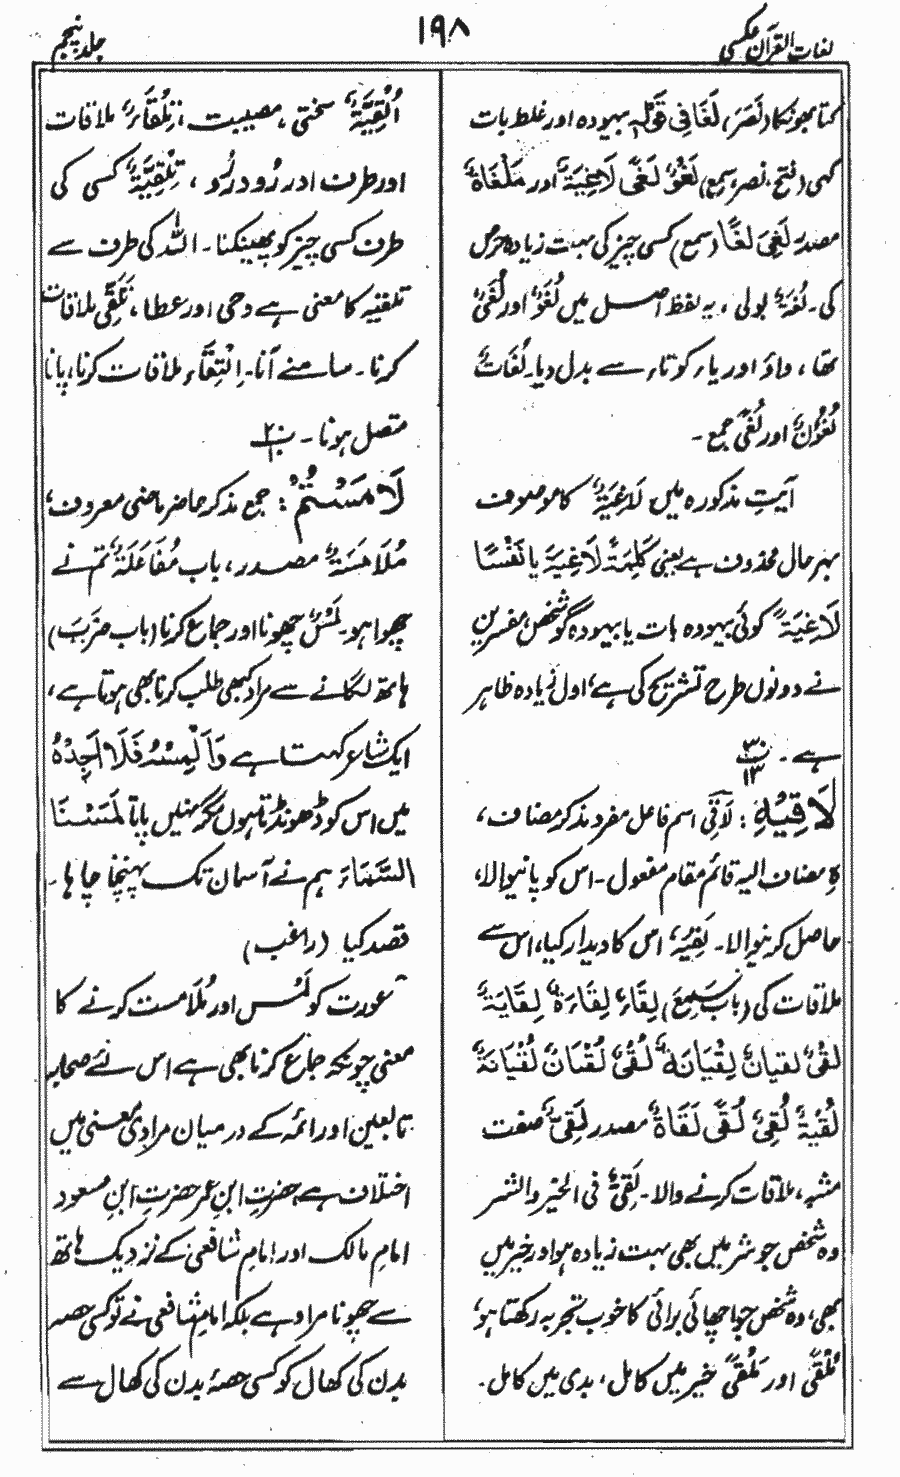 لغات القرآن عکسی
۱۹۸
جلد پنجم
کتا بھونکا (نَصَرَ) لَغَا فِی قَوْلِہٖ بیہودہ اور غلط بات
کہی (فتح، نصر، سمع) لَغْوٌ لَغًی لَاغِیَۃٌ اور مَلْغَاۃٌ
مصدر لَغِیَ لَغًا (سمع) کسی چیز کی بہت زیادہ حرص
کی۔ لُغَۃٌ بولی، یہ لفظ اصل میں لُغَوٌ اور لُغَیٌ
تھا، واؤ اور یاء کو تاء سے بدل دیا۔ لُغَاتٌ
لُغُوْنَ اور لُغًی جمع ۔
آیتِ مذکورہ میں لَاغِیَۃٌ کا موصوف
بہر حال محذوف ہے یعنی کَلِمَۃً لَاغِیَۃً یا نَفْسًا
لَاغِیَۃً کوئی بیہودہ بات یا بیہودہ گو شخص، مفسرین
نے دونوں طرح تشریح کی ہے، اول زیادہ ظاہر
ہے ۔ پ۳۰ ۱۳
لَاقِیْہِ : لَاقِی اسم فاعل مفرد مذکر مضاف،
ہٖ مضاف الیہ قائم مقام مفعول ۔ اس کو پانیوالا،
حاصل کرنیوالا ۔ لَقِیَہٗ، اس کا دیدار کیا، اس سے
ملاقات کی (باب سَمِعَ) لِقَاءٌ لِقَاءَۃٌ لِقَایَۃٌ
لِقْیٌ لقیانٌ لِقْیَانَۃٌ لُقْیٌ لُقْیَانٌ لُقْیَانَۃٌ
لُقْیَۃٌ لُقِیٌّ لُقًی لَقَاۃٌ مصدر لَقِیٌّ صفت
مشبہ، ملاقات کرنے والا ۔ لَقِیٌّ فی الخیر والشر
وہ شخص جو شر میں بھی بہت زیادہ ہو اور خیر میں
بھی، وہ شخص جو اچھائی برائی کا خوب تجربہ رکھتا ہو،
مُلْقًی اور مَلْقًی خیر میں کامل، بدی میں کامل ۔
اُلْقِیَّۃٌ، سختی، مصیبت، تِلْقَاءٌ ملاقات
اور طرف اور رُو در رُو ، تِلْقِیَّۃٌ کسی کی
طرف کسی چیز کو پھینکنا ۔ اللہ کی طرف سے
تلقیہ کا معنی ہے وحی اور عطا، تَلَقِّی ملاقات
کرنا ۔ سامنے آنا ۔ اِلْتِقَاء ملاقات کرنا، پانا
متصل ہونا ۔ پ۲۰
لَامَسْتُمْ : جمع مذکر حاضر ماضی معروف،
مُلَامَسَۃٌ مصدر، باب مُفَاعَلَۃٌ تم نے
چھوا ہو ۔ لَمْسٌ چھونا اور جماع کرنا (باب ضَرَبَ)
ہاتھ لگانے سے مراد کبھی طلب کرنا بھی ہوتا ہے،
ایک شاعر کہتا ہے وَ اَلْمِسُہٗ فَلَا اَجِدُہٗ
میں اس کو ڈھونڈتا ہوں مگر نہیں پاتا لَمَسْنَا
السَّمَاءَ ہم نے آسمان تک پہنچنا چاہا ۔
قصد کیا (راغب)
عورت کو لَمْس اور مُلَامست کرنے کا
معنی چونکہ جماع کرنا بھی ہے اس لئے صحابہ
تابعین اور ائمہ کے درمیان مرادی معنی میں
اختلاف ہے، حضرتِ ابنِ عمر حضرتِ ابنِ مسعود
امامِ مالک اور امامِ شافعی کے نزدیک ہاتھ
سے چھونا مراد ہے بلکہ امامِ شافعی نے تو کسی حصہ
بدن کی کھال کو کسی حصۂ بدن کی کھال سے